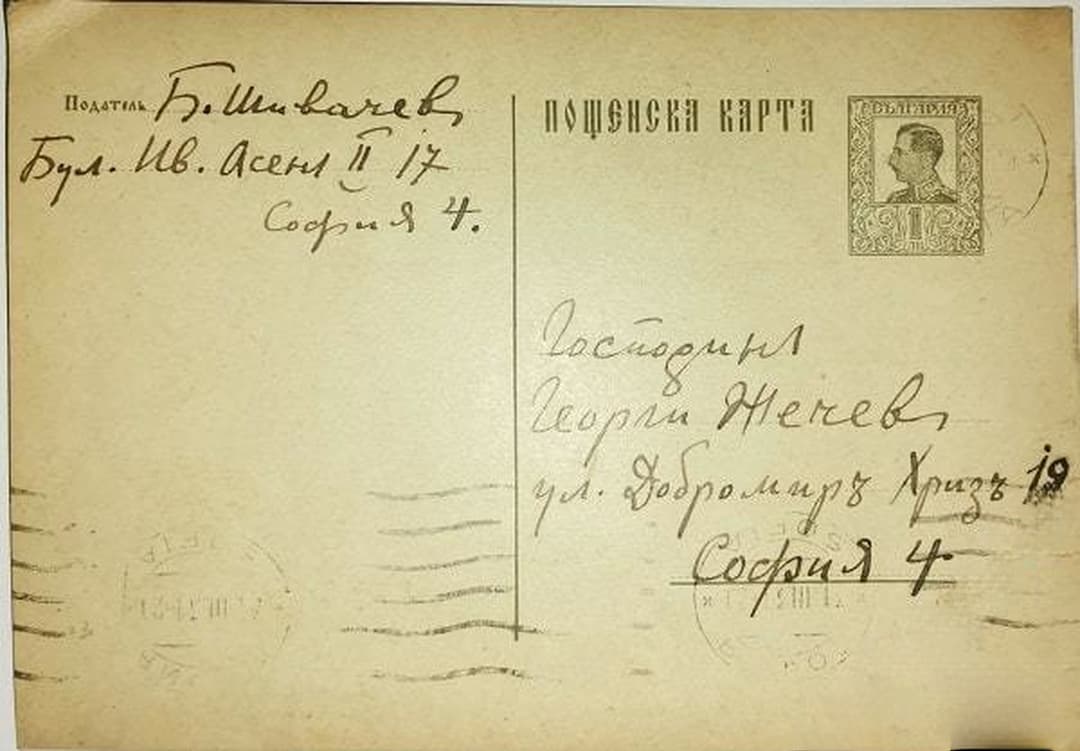 Податель Б. Шивачевъ
Бул. Ив. Асенъ II 17
София 4.
ПОЩЕНСКА КАРТА
БЪЛГАРИЯ
1
Господинъ
Георги Жечевъ
ул. Добромиръ Хризъ 19
София 4